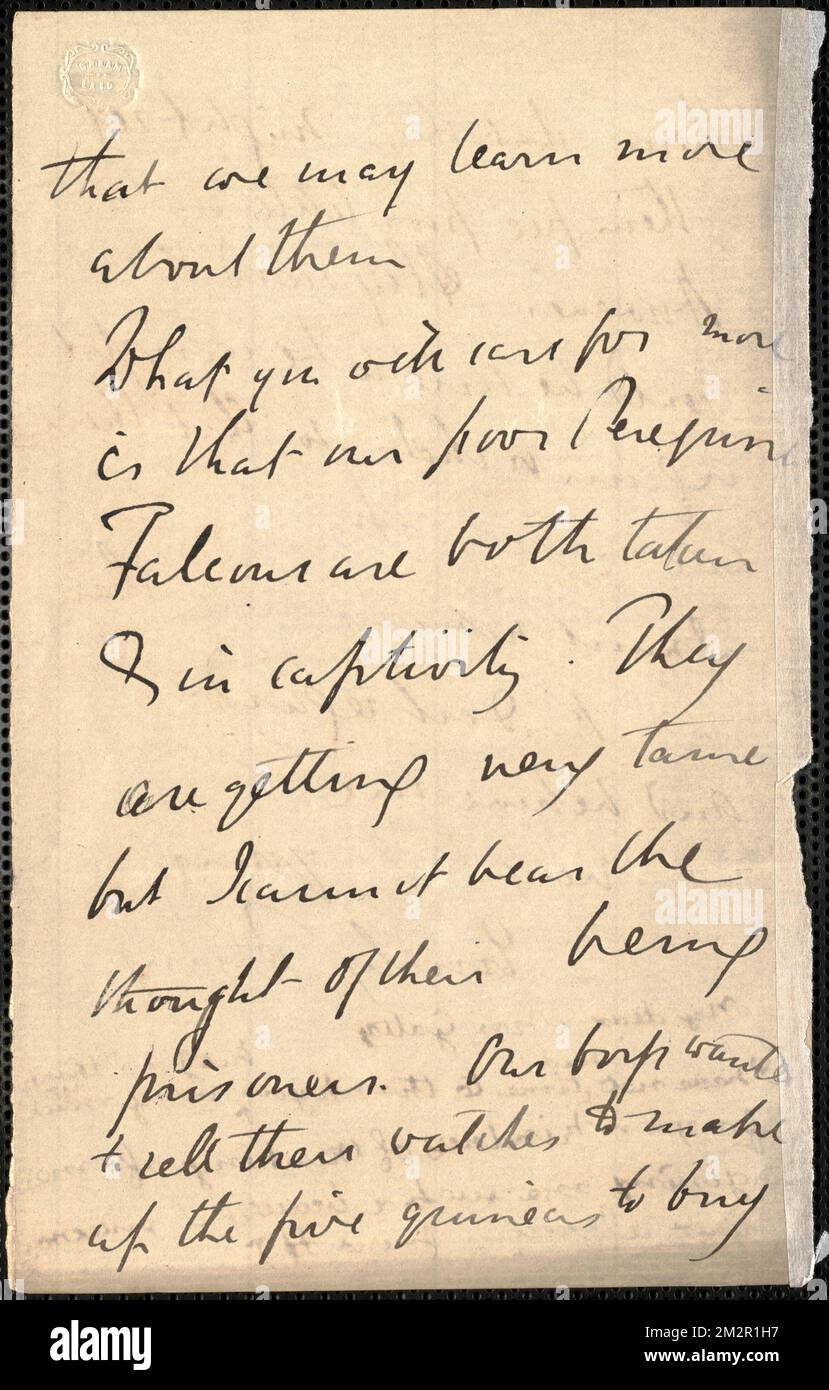 that we may learn more
about them
What you will care for more
is that our poor Peregrine
Falcons are both taken
& in captivity. They
are getting very tame
but I cannot bear the
thought of their being
prisoners. Our boys wanted
to sell their watches to make
up the five guineas to buy
alamy
Image ID: 2M2R1H7
www.alamy.com